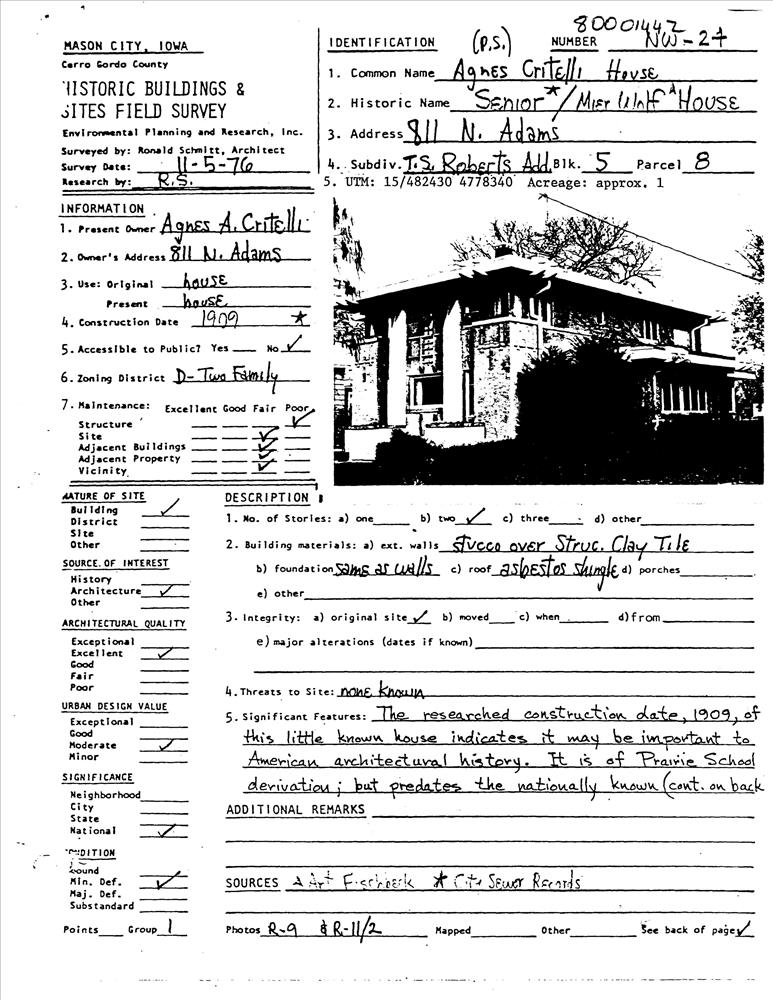 80001442
MASON CITY, IOWA
Cerro Gordo County
HISTORIC BUILDINGS &
SITES FIELD SURVEY
Environmental Planning and Research, Inc.
Surveyed by: Ronald Schmitt, Architect
Survey Date: 11-5-76
Research by: R.S.
IDENTIFICATION (P.S.) NUMBER NW-24
1. Common Name Agnes Critelli House
2. Historic Name Senior* / House
3. Address 811 N. Adams
4. Subdiv. T.S. Roberts Add. Blk. 5 Parcel 8
5. UTM: 15/482430 4778340 Acreage: approx. 1
INFORMATION
1. Present Owner Agnes A. Critelli
2. Owner's Address 811 N. Adams
3. Use: Original house
Present house
4. Construction Date 1909 *
5. Accessible to Public? Yes No ✓
6. Zoning District D- Two Family
7. Maintenance: Excellent Good Fair Poor
Structure ✓
Site ✓
Adjacent Buildings ✓
Adjacent Property ✓
Vicinity ✓
NATURE OF SITE
Building ✓
District
Site
Other
SOURCE OF INTEREST
History
Architecture ✓
Other
ARCHITECTURAL QUALITY
Exceptional
Excellent ✓
Good
Fair
Poor
URBAN DESIGN VALUE
Exceptional
Good
Moderate ✓
Minor
SIGNIFICANCE
Neighborhood
City
State
National ✓
CONDITION
Sound
Min. Def. ✓
Maj. Def.
Substandard
Points Group 1
DESCRIPTION
1. No. of Stories: a) one b) two ✓ c) three d) other
2. Building materials: a) ext. walls stucco over Struc. Clay Tile
b) foundation same as walls c) roof asbestos shingle d) porches
e) other
3. Integrity: a) original site ✓ b) moved c) when d) from
e) major alterations (dates if known)
4. Threats to Site: none known
5. Significant Features: The researched construction date, 1909, of
this little known house indicates it may be important to
American architectural history. It is of Prairie School
derivation; but predates the nationally known (cont. on back
ADDITIONAL REMARKS
SOURCES Art Fischbeck * City Sewer Records
Photos R-9 & R-11/2 Mapped Other See back of page ✓